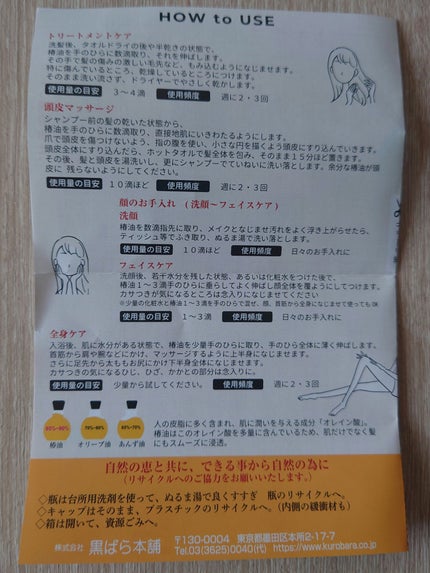 HOW to USE
トリートメントケア
洗髪後、タオルドライの後や半乾きの状態で、
椿油を手のひらに数滴取り、それを伸ばします。
その手で髪の傷みの激しい毛先など、もみ込むようになじませます。
特に傷んでいるところ、乾燥しているところにつけます。
そのまま洗い流さず、ドライヤーでやさしく乾かします。
使用量の目安 3〜4滴 使用頻度 週に2・3回
頭皮マッサージ
シャンプー前の髪の乾いた状態から、
椿油を手のひらに数滴取り、直接地肌にいきわたるようにします。
爪で頭皮を傷つけないよう、指の腹を使い、小さな円を描くよう頭皮にすり込んでいきます。
頭皮全体にすり込んだら、ホットタオルで髪全体を包み、そのまま15分ほど置きます。
その後、髪と頭皮を湯洗いし、更にシャンプーでていねいに洗い落とします。余分な椿油が頭
皮に 残らないようにしてください。
使用量の目安 10滴ほど 使用頻度 週に2・3回
顔のお手入れ (洗顔〜フェイスケア)
洗顔
椿油を数滴指先に取り、メイクとなじませ汚れをよく浮き上がらせたら、
ティッシュ等でふき取り、ぬるま湯で洗い落とします。
使用量の目安 10滴ほど 使用頻度 日々のお手入れに
フェイスケア
洗顔後、若干水分を残した状態、あるいは化粧水をつけた後で、
椿油1〜3滴手のひらに垂らしてよく伸ばし顔全体を覆うようにしてつけます。
カサつきが気になるところは念入りになじませてください
※少量の化粧水と椿油1〜3滴を手のひらで混ぜ、顔、首筋から全身になじませて使ってもOK
使用量の目安 1〜3滴 使用頻度 日々のお手入れに
全身ケア
入浴後、肌に水分がある状態で、椿油を少量手のひらに取り、手のひら全体に薄く伸ばします。
首筋から肩や腕などにかけ、マッサージするように上半身になじませます。
さらに足先から太ももお尻にかけ下半身全体になじませます。
カサつきの気になるひじ、ひざ、かかとの部分は念入りに。
使用量の目安 少量から試してください。 使用頻度 週に2・3回
椿油
オリーブ油
あんず油
人の皮脂に多く含まれ、肌に潤いを与える成分「オレイン酸」。
椿油はこのオレイン酸を多量に含んでいるため、肌だけでなく髪
にもスムーズに浸透。
自然の恵と共に、できる事から自然の為に
(リサイクルへのご協力をお願いいたします。)
◇瓶は台所用洗剤を使って、ぬるま湯で良くすすぎ 瓶のリサイクルへ。
◇キャップはそのまま、プラスチックのリサイクルへ。(内側の緩衝材も)
◇箱は開いて、資源ごみへ。
株式会社 黒ばら本舗 〒130-0004 東京都墨田区本所2-17-7
Tel.03(3625)0040(代) https://www.kurobara.co.jp